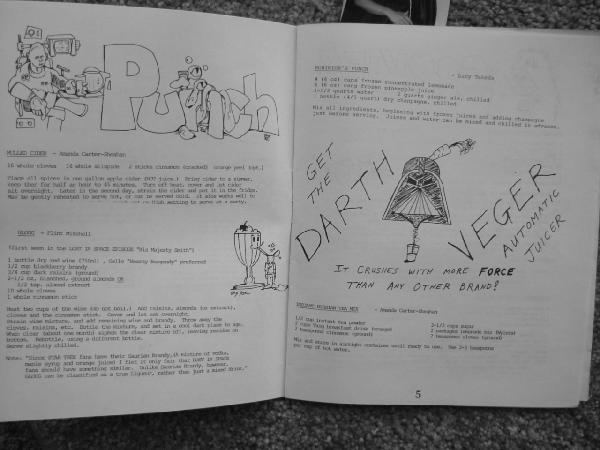 Punch
MULLED CIDER - Amanda Carter-Sheahan
16 whole cloves 16 whole allspice 2 sticks cinnamon (cracked) orange peel
Place all spices in one gallon apple cider (NOT juice.) Bring cider to a simmer,
keep ther for half an hour to 45 minutes. Turn off heat, cover and let cider
sit overnight. Later in the second day, strain the cider and put it in the fridge.
May be gently reheated to serve hot, or can be served cold. It also works well to
on high setting to serve at a party.
- Flint Mitchell
(First seen in the LOST IN SPACE EPISODE "His Majesty Smith")
1 bottle dry red wine (750ml), Gallo "Hearty Burgundy" preferred
1/2 cup blackberry brandy
3/4 cup dark raisins (ground)
2-1/2 oz. blanched, ground almonds OR
1/2 tsp. almond extract
10 whole cloves
1 whole cinnamon stick
Heat two cups of the wine (do not boil.) Add raisins, almonds (or extract),
cloves and the cinnamon stick. Cover and let set overnight.
Strain wine mixture, and add remaining wine and brandy. Throw away the
cloves, raisins, etc. Bottle the mixture, and set in a cool dark place to age.
When clear (about one month) siphon the clear mixture off, leaving residue on
bottom. Rebottle, using a different bottle.
Serve slightly chilled.
Note: "Since STAR TREK fans have their Saurian Brandy, (A mixture of vodka,
maple syrup and orange juice) I feel it only fair that LOST IN SPACE
fans should have something similar. Unlike Saurian Brandy, however,
can be classified as a true liqueur, rather than just a mixed drink."
PUNCH
4 (6 oz) cans frozen concentrated lemonade
4 (6 oz) cans frozen pineapple juice
quarts water 2 quarts ginger ale, chilled
1 bottle (4/5 quart) dry champagne, chilled
Mix all ingredients, beginning with frozen juices and adding champagne
just before serving. Juices and water can be mixed and chilled in advance.
GET
THE
DARTH
VEGER
AUTOMATIC
JUICER
IT CRUSHES WITH MORE FORCE
THAN ANY OTHER BRAND!
RUSSIAN TEA MIX - Amanda Carter-Sheahan
1/2 cup instant tea powder
2 cups Tang breakfast drink
2 teaspoons cinnamon (ground)
2-1/2 cups sugar
2 packages lemonade mix
2 teaspoons cloves (ground)
Mix and store in airtight container until ready to use. Use 2-3 teaspoons
per cup of hot water.
5